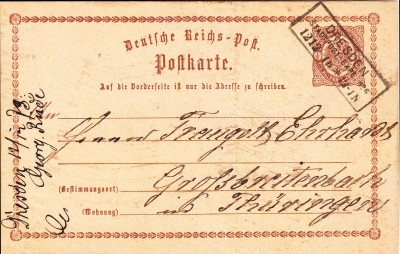 Deutsche Reichs-Post.
Postkarte.
Auf die Vorderseite ist nur die Adresse zu schreiben.
DRESDEN
An
Herrn Traugott Ehrhardt
(Bestimmungsort)
Großbreitenbach
(Wohnung)
in Thüringen
Dresden
Georg